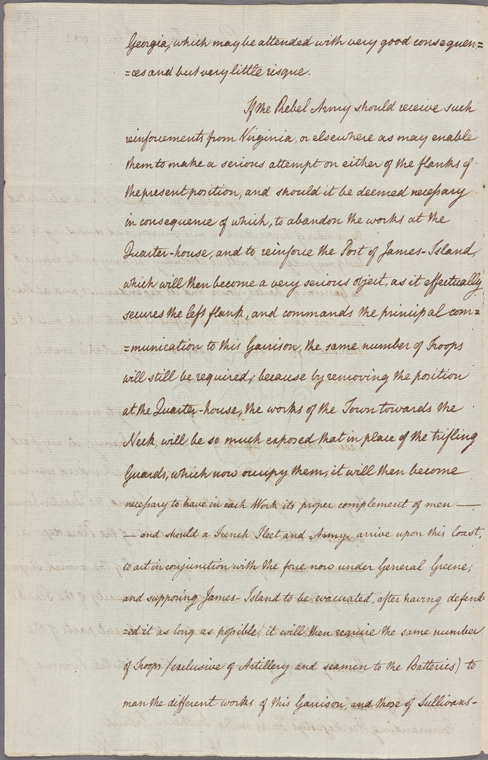 Georgia, which may be attended with very good consequen=
=ces and but very little risque.
If the Rebel Army should receive such
reinforcements from Virginia, or elsewhere as may enable
them to make a serious attempt on either of the flanks of
the present position, and should it be deemed necessary
in consequence of which, to abandon the works at the
Quarter-house, and to reinforce the Post of James-Island,
which will then become a very serious object, as it effectually
secures the left flank, and commands the principal com=
=munication to this Garrison, the same number of Troops
will still be required; because by removing the position
at the Quarter-house, the works of the Town towards the
Neck, will be so much exposed that in place of the trifling
Guards, which now occupy them, it will then become
necessary to have in each Work its proper complement of men —
— and should a French Fleet and Army arrive upon this Coast,
to act in conjunction with the force now under General Greene;
and supposing James-Island to be evacuated, after having defend
=ed it as long as possible, it will then require the same number
of Troops (exclusive of Artillery and seamen to the Batteries) to
man the different works of this Garrison, and those of Sullivans-